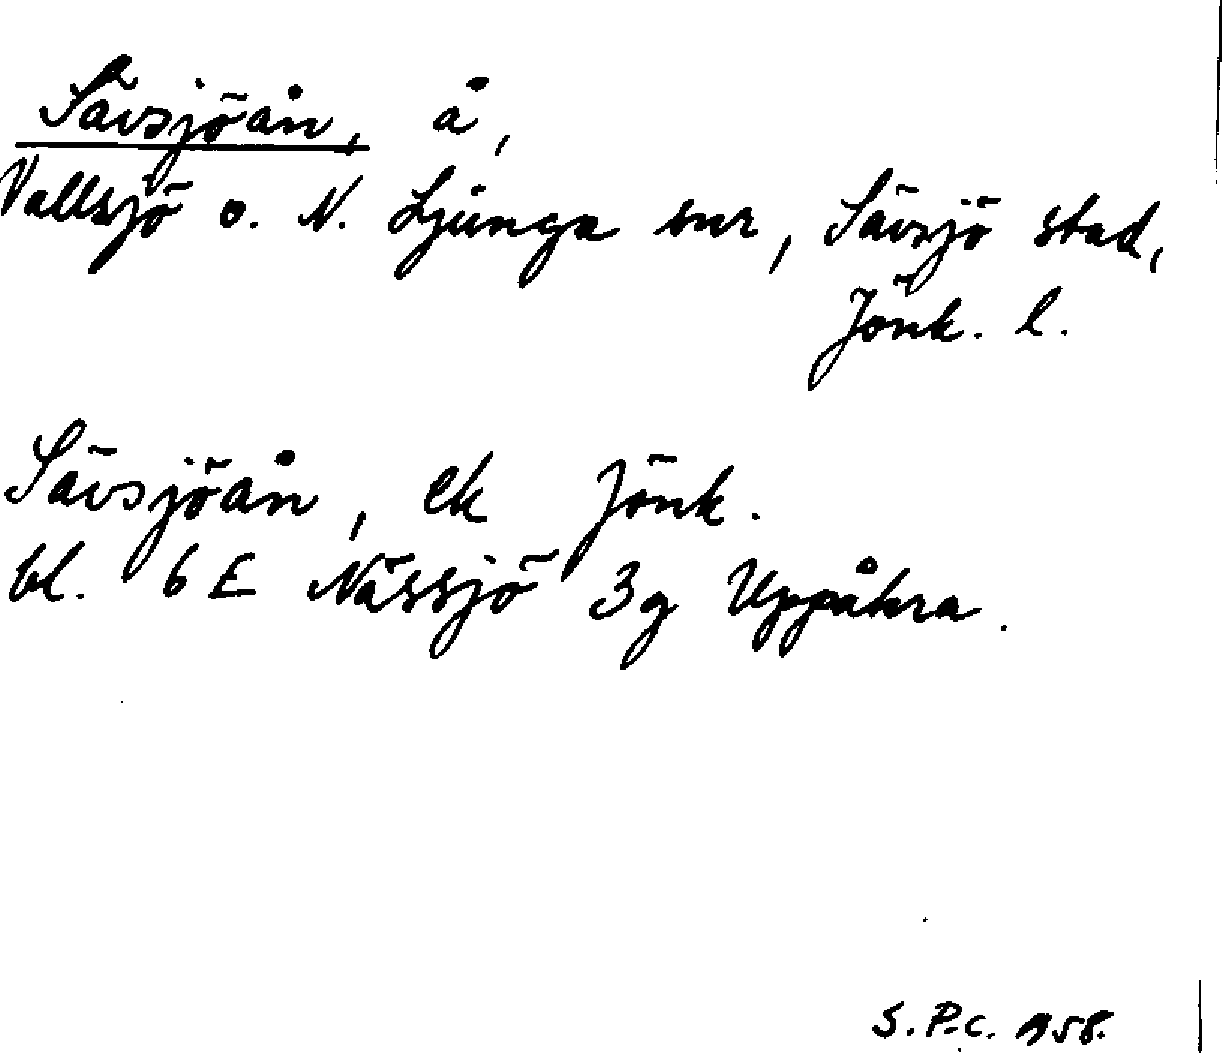 Sävsjöån, å,
Vallsjö o. N. Ljunga snr, Sävsjö stad,
Jönk. l.
Sävsjöån, ek Jönk.
bl. 6 E Nässjö 3g Uppåkra.
S.P.C. 1958.